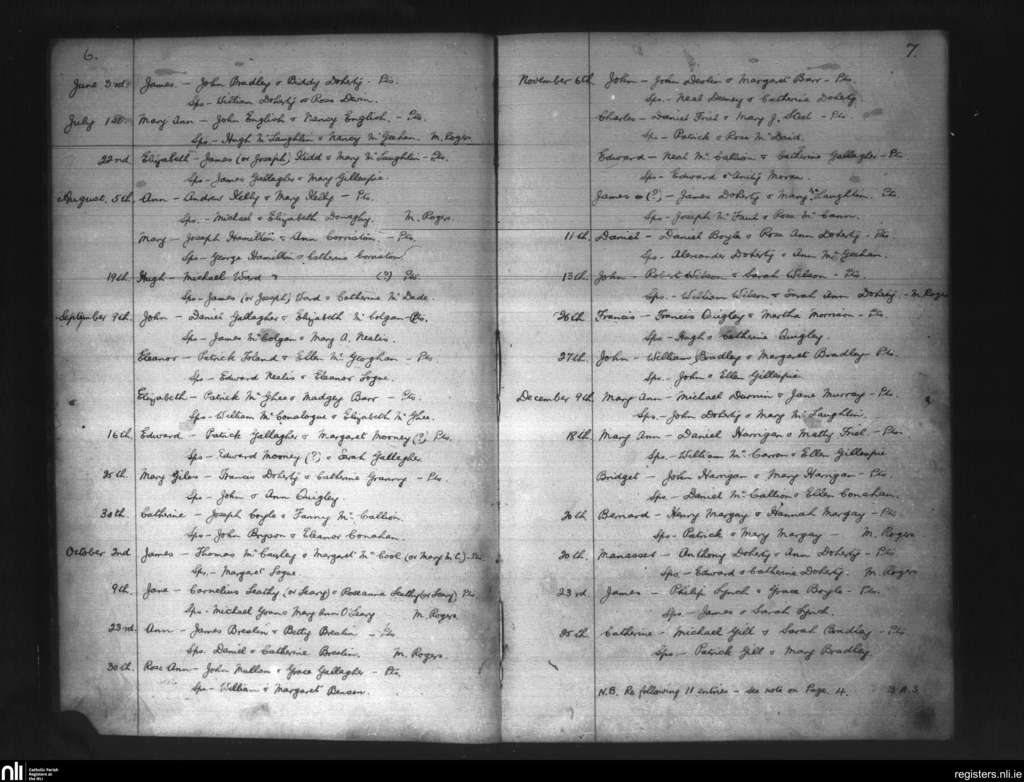 6.
June 3rd. James – John Bradley & Biddy Doherty – Pts.
Sps – William Doherty & Rose
July 1st. Mary Ann – John English & Nancy English. – Pts.
Sps – Hugh Mc Laughlin & Nancy Mc Geehan. M. Rogers
22nd. Elizabeth – James (or Joseph) Kidd & Mary Mc Laughlin – Pts.
Sps – James Gallagher & Mary Gillespie.
August. 5th. Ann – Andrew Kelly & Mary Kelly – Pts.
Sps. – Michael & Elizabeth Donaghy. M. Rogers
Mary – Joseph Hamilton & Ann – Pts
Sps – George Hamilton & Catherine
19th. Hugh – Michael Ward & (?) Pts.
Sps – James (or Joseph) Ward & Catherine Mc Dade.
September 9th. John – Daniel Gallagher & Elizabeth Mc Colgan – Pts.
Sps – James Mc Colgan & Mary A. Nealis.
Eleanor – Patrick Toland & Ellen Mc Georghan – Pts
Sps – Edward Nealis & Eleanor Logue.
Elizabeth – Patrick Mc Ghee & Madgey Barr – Pts.
Sps – William Mc Conalogue & Elizabeth Mc Ghee.
16th. Edward – Patrick Gallagher & Margaret Mooney (?) Pts.
Sps – Edward Mooney (?) & Sarah Gallagher
25th. Mary Giles – Francis Doherty & Catherine Granny – Pts.
Sps – John & Ann Quigley
30th. Catherine – Joseph Coyle & Fanny Mc Callion.
Sps – John Bryson & Eleanor Conahan.
October 2nd James – Thomas Mc Cauley & Margaret Mc Cool (or Mary Mc C.) – Pts
Sps. – Margaret Logue
9th. Jane – Cornelius Leathy (or Leary) & Roseanna Leathy (or Leary) Pts.
Sps – Michael & Mary Ann O'Leary M. Rogers
23rd. Ann – James Breslin & Betty Breslin – Pts
Sps. Daniel & Catherine Breslin. M. Rogers.
30th. Rose Ann – John Mullen & Grace Gallagher – Pts.
Sps – William & Margaret Benson.
7.
November 6th. John – John Devlin & Margaret Barr – Pts
Sps – Neal Deeney & Catherine Doherty.
Charles – Daniel Friel & Mary J. Steel – Pts.
Sps – Patrick & Rose Mc Daid.
Edward – Neal Mc Callion & Catherine Gallagher – Pts
Sps – Edward & Moran.
James (?) – James Doherty & Mary Mc Laughlin. Pts
Sps – Joseph Mc & Rose Mc Cann.
11th. Daniel – Daniel Boyle & Rose Ann Doherty – Pts.
Sps – Alexander Doherty & Ann Mc Geehan.
13th. John – Robert Wilson & Sarah Wilson – Pts.
Sps. – William Wilson & Sarah Ann Doherty. – M. Rogers
26th Francis – Francis Quigley & Martha Morrison – Pts.
Sps – Hugh & Catherine Quigley.
27th. John – William Bradley & Margaret Bradley Pts.
Sps – John & Ellen Gillespie
December 9th. Mary Ann – Michael & Jane Murray – Pts.
Sps – John Doherty & Mary Mc Laughlin.
18th. Mary Ann – Daniel Harrigan & Matty Friel – Pts
Sps – William Mc Carron & Ellen Gillespie
Bridget – John Harrigan & Mary Harrigan – Pts
Sps – Daniel Mc Callion & Ellen Conahan.
20th Bernard – Henry Margay & Hannah Margay – Pts
Sps – Patrick & Mary Margay – M. Rogers
20th. Manasses – Anthony Doherty & Ann Doherty – Pts
Sps – Edward & Catherine Doherty. M. Rogers
23rd. James – Philip Lynch & Grace Boyle – Pts.
Sps – James & Sarah Lynch.
25th. Catherine – Michael Gill & Sarah Bradley – Pts
Sps – Patrick Gill & Mary Bradley.
N.B. Re following 11 entries – see note on Page 4.
nli Catholic Parish
Registers at
the NLI
registers.nli.ie